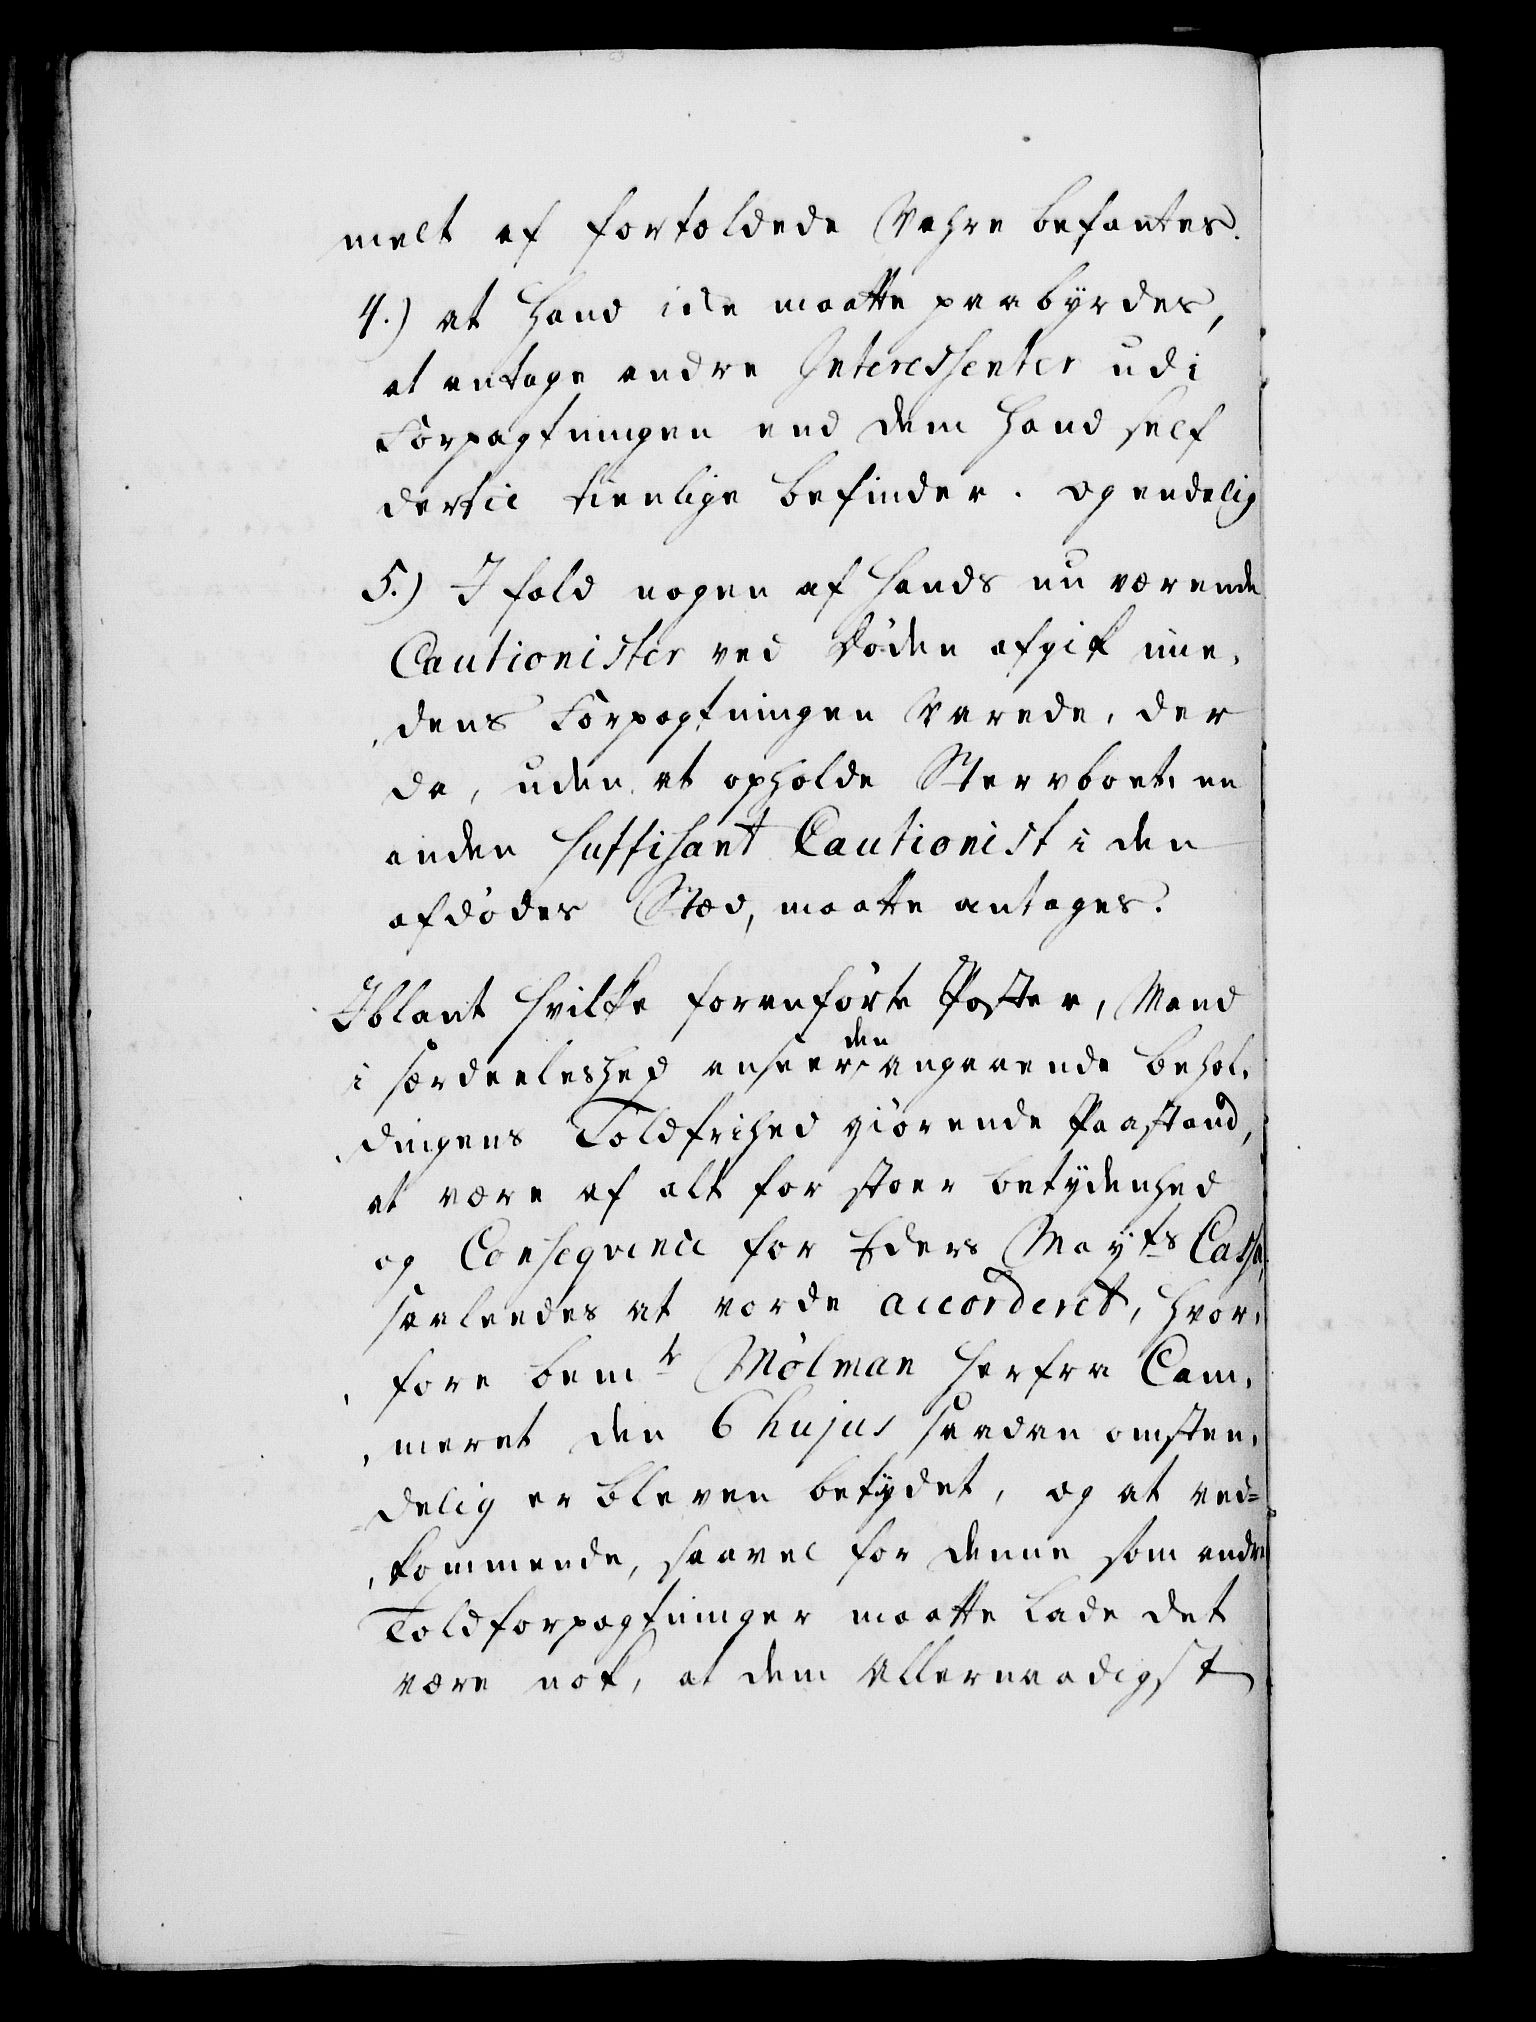 melt af fortoldede Vahre befantes.
4.) at hand icke maatte paabyrdes,
at antage andre Interessenter udi
Forpagtningen end dem hand self
dertil tienlige befinder. og endelig
5.) I fald nogen af hands nu værende
Cautionister ved Døden afgik ime,
dens Forpagtningen varede, der
da, uden at opholde Stervboet, en
anden suffisant Cautionist i den
afdødes Stæd, maatte antages.
Iblant hvilke foranførte Poster, Mand
i særdeeleshed anseer den angaaende behol,
dingens Toldfrihed giørende Paastand,
at være af alt for stoer betydenhed
og Consequence for Eders Mayts Cassa,
saaleedes at vorde accorderet, hvor,
fore bemte Mølman herfra Cam,
meret den 6 hujus saadan omsten,
delig er bleven betydet, og at ved=
kommende, saavel for denne som andre
Toldforpagtninger maatte lade det
være nok, at dem allernaadigst